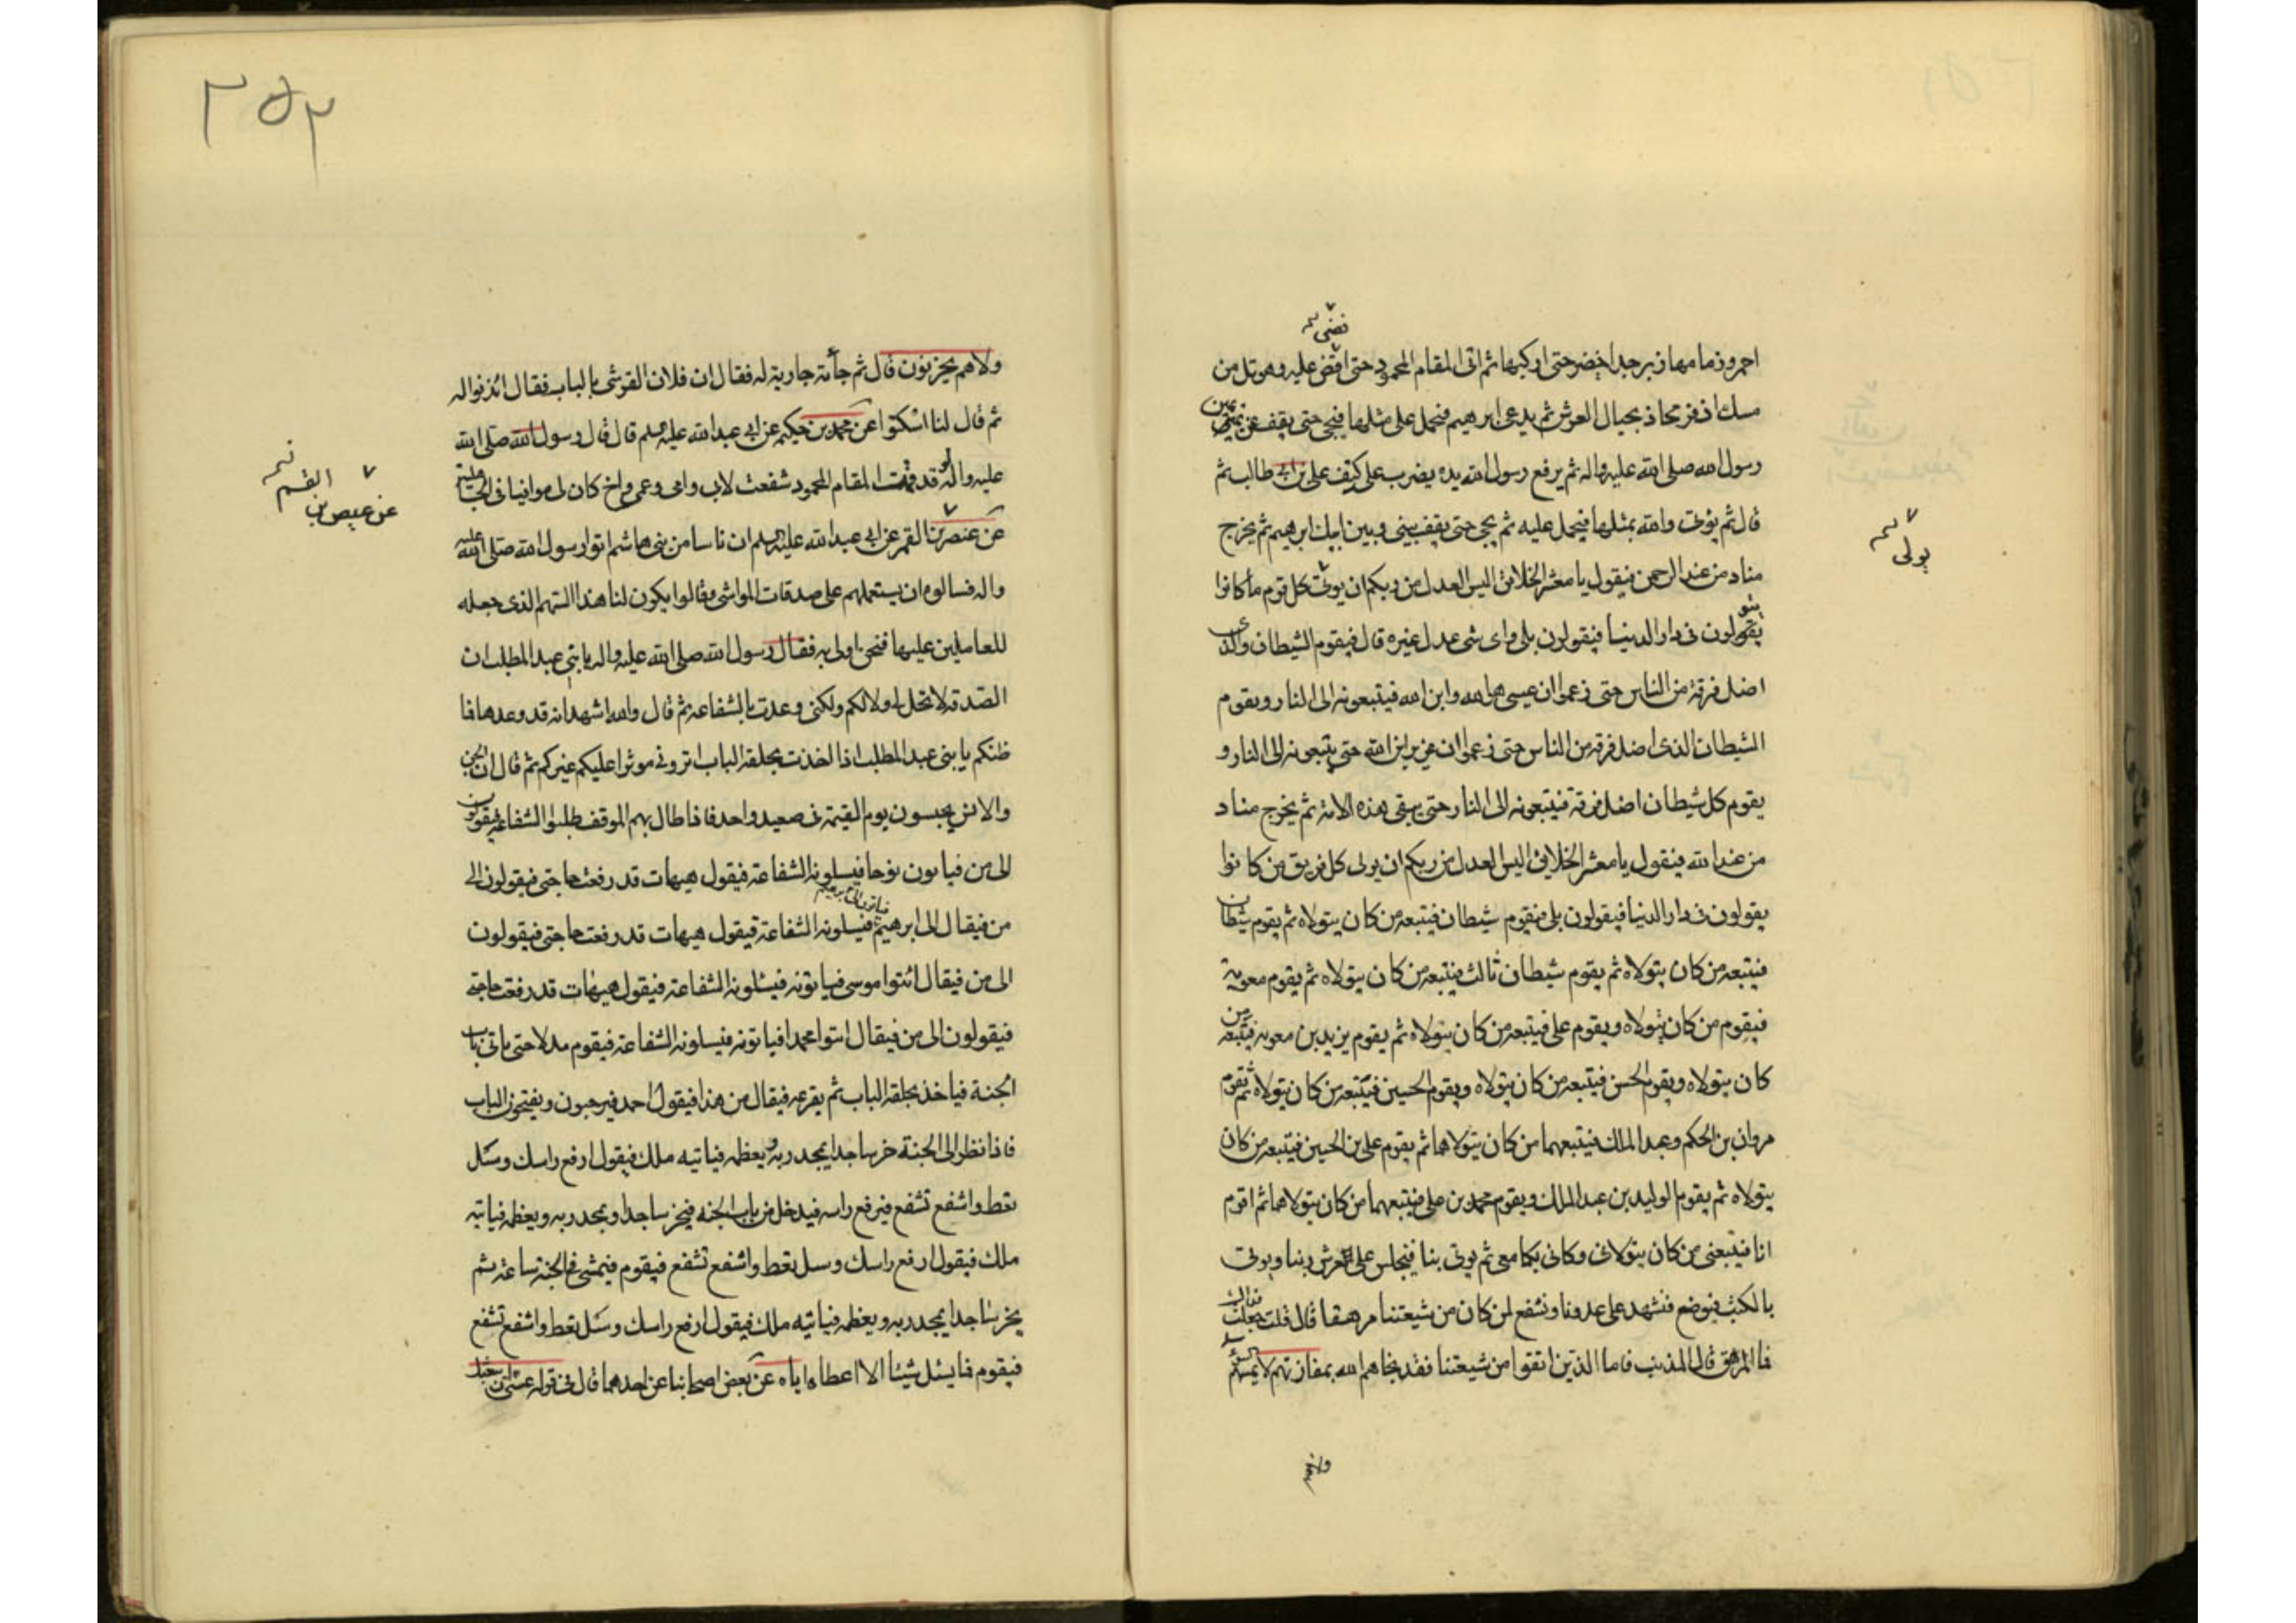 احمر وزمامها زبرجد اخضر حتى اركبها ثم اتى المقام المحمود حتى اقض عليه وهو تل من
نضى
مسك اذفر بحاذ بحيال العرش ثم يدعى ابرهيم فيحمل على مثلها فيجئ حتى يقف عن يمين
رسول الله صلى الله عليه واله ثم يرفع رسول الله يده يضرب على كتف على بن ابى طالب ثم
قال ثم يؤتى والله بمثلها فيحمل عليه ثم يجئ حتى يقف بينى وبين ابيك ابرهيم ثم يخرج
مناد من عند الرحمن فيقول يا معشر الخلائق اليس العدل من ربكم ان يوتى كل قوم ما كانوا
يولى
يقولون فى دار الدنيا فيقولون بلى واى شى عدل غيره قال فيقوم الشيطان الذى
اضل فرقة من الناس حتى زعموا ان عيسى هو الله وابن الله فيتبعونه الى النار ويقوم
الشيطان الذى اضل فرقة من الناس حتى زعموا ان عزير ابن الله حتى يتبعونه الى النار و
يقوم كل شيطان اضل فرقة فيتبعونه الى النار حتى يبقى هذه الامة ثم يخرج مناد
من عند الله فيقول يا معشر الخلائق اليس العدل من ربكم ان يولى كل فريق من كانوا
يقولون فى دار الدنيا فيقولون بلى فيقوم شيطان فيتبعه من كان يتولاه ثم يقوم شيطان
فيتبعه من كان يتولاه ثم يقوم شيطان ثالث فيتبعه من كان يتولاه ثم يقوم معوية
فيقوم من كان يتولاه ويقوم على فيتبعه من كان يتولاه ثم يقوم يزيد بن معوية فيتبعه من
كان يتولاه ويقوم الحسن فيتبعه من كان يتولاه ويقوم الحسين فيتبعه من كان يتولاه ثم يقوم
مروان بن الحكم وعبد الملك فيتبعهما من كان يتولاهما ثم يقوم على بن الحسين فيتبعه من كان
يتولاه ثم يقوم الوليد بن عبد الملك ويقوم محمد بن على فيتبعهما من كان يتولاهما ثم اقوم
انا فيتبعنى من كان يتولانى وكانى بكما معى ثم يوتى بنا فيجلس على العرش ربنا ويوتى
بالكتب فيوضع فنشهد على عدونا ونشفع لمن كان من شيعتنا مرهقا قال قلت جعلت فداك
فا المرهق قال المذنب فاما الذين اتقوا من شيعتنا فقد نجاهم الله بمفازتهم لا يمسهم السوء
ولاهم
٣٥٢
ولاهم يحزنون قال ثم جائته جارية له فقال ان فلان القرشى بالباب فقال ائذنوا له
ثم قال لنا اسكتوا عن محمد بن حكيم عن ابى عبد الله عليه السلم قال قال رسول الله صلى الله
عليه واله لو قد قمت المقام المحمود شفعت لابى وامى وعمى واخ كان لى موافيا فى الجاهلية
عن عنصر بن القمر عن ابى عبد الله عليه السلم ان ناسا من بنى هاشم اتوا رسول الله صلى الله عليه
عن عيص بن القسم
واله فسالوه ان يستعملهم على صدقات المواشى وقالوا يكون لنا هذا السهم الذى جعله
للعاملين عليها فنحن اولى به فقال رسول الله صلى الله عليه واله يا بنى عبد المطلب ان
الصدقة لا تحل لى ولا لكم ولكنى وعدت بالشفاعة ثم قال والله اشهد انه قد وعدها فا
ظنكم يا بنى عبد المطلب اذا اخذت بحلقة الباب اترونى موثرا عليكم غيركم ثم قال ان الجن
والانس يحبسون يوم القيمة فى صعيد واحد فاذا طال بهم الموقف طلبوا الشفاعة فيقولون
الى من فياتون نوحا فيسلونه الشفاعة فيقول هيهات قد رفعت حاجتى فيقولون الى
من فيقال الى ابرهيم فياتون الى ابرهيم فيسلونه الشفاعة فيقول هيهات قد رفعت حاجتى فيقولون
الى من فيقال ائتوا موسى فياتونه فيسئلونه الشفاعة فيقول هيهات قد رفعت حاجتى
فيقولون الى من فيقال ائتوا محمدا فياتونه فيسلونه الشفاعة فيقوم مدلا حتى ياتى باب
الجنة فياخذ بحلقة الباب ثم يقرعه فيقال من هذا فيقول احمد فيرحبون ويفتحون الباب
فاذا نظر الى الجنة خر ساجدا يمجد ربه ويعظمه فياتيه ملك فيقول ارفع راسك وسل
تعط واشفع تشفع فيرفع راسه فيدخل من باب الجنة فيخر ساجدا ويمجد ربه ويعظمه فياتيه
ملك فيقول ارفع راسك وسل تعط واشفع تشفع فيقوم فيمشى فى الجنة ساعة ثم
يخر ساجدا يمجد ربه ويعظمه فياتيه ملك فيقول ارفع راسك وسل تعط واشفع تشفع
فيقوم فما يسئل شيئا الا اعطاه اياه عن بعض اصحابنا عن احدهما قال فى قوله عسى ان يبعثك